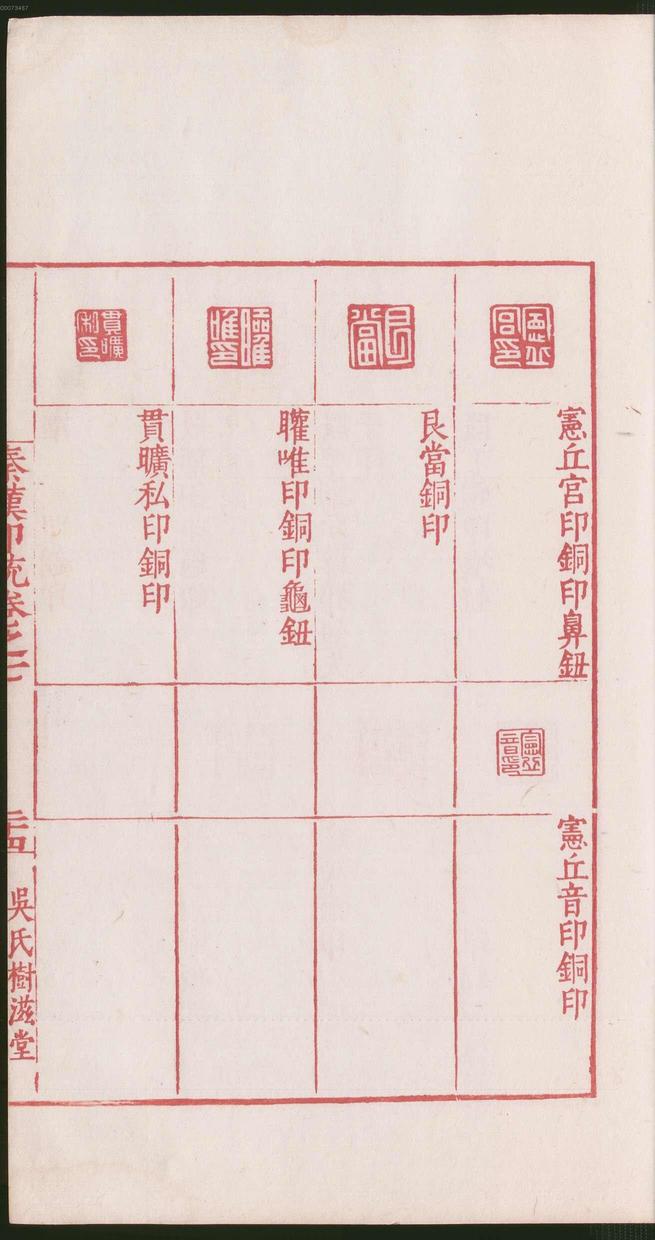 00073467
憲丘宮印銅印鼻鈕
憲丘音印銅印
艮當銅印
矔唯印銅印龜鈕
貫曠私印銅印
秦漢印統卷之七
二十四
吳氏樹滋堂